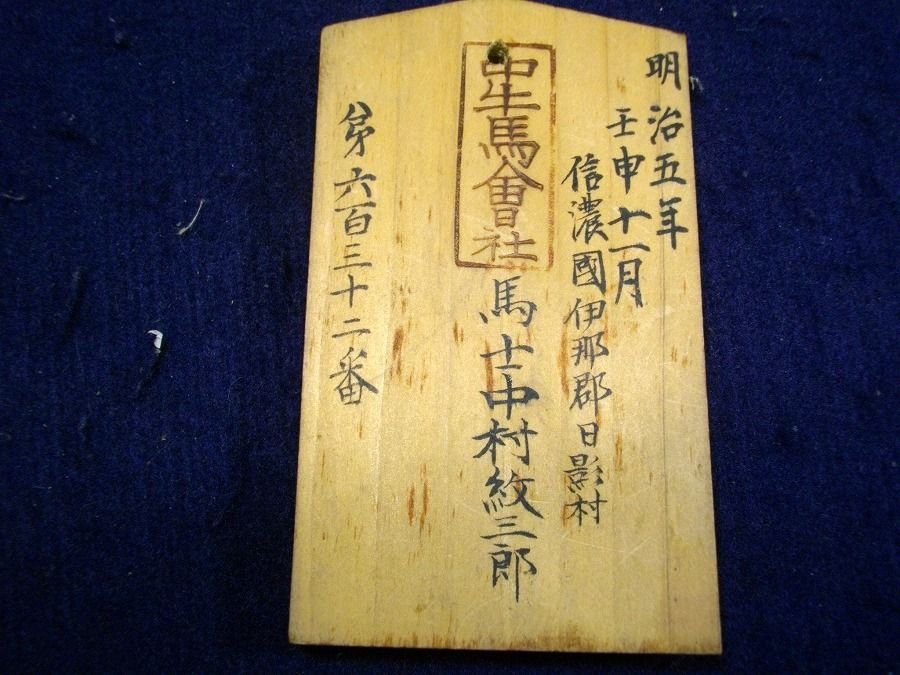 明治五年
壬申十一月
信濃國伊那郡日影村
中牛馬會社
馬士中村紋三郎
第六百三十二番